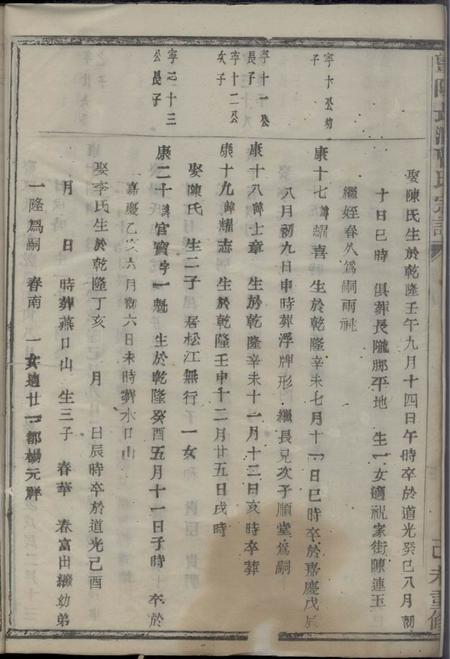 娶陳氏生於乾隆壬午九月十四日午時卒於道光癸巳八月初
十日巳時 俱葬長隴脚平地 生一女適祝家街陳連玉
繼姪春久爲嗣兩祧
寧十公幼子
康十七諱耀喜 生於乾隆辛未七月十一日巳時卒於嘉慶戊辰
八月初九日申時葬浮牌形 繼長兄次子順堂爲嗣
寧十一公長子
康十八諱士章 生於乾隆辛未十一月十二日亥時卒葬
寧十二公次子
康十九諱耀志 生於乾隆壬申十二月廿五日戌時
娶陳氏 生二子 居松江無行 一女
寧之十三公長子
康二十諱官寶字一魁 生於乾隆癸酉五月十一日子時 卒於
嘉慶乙亥六月初六日未時葬水口山
娶李氏生於乾隆丁亥 月 日辰時卒於道光己酉
月 日 時葬燕口山 生三子 春華 春富出繼幼弟
一隆爲嗣 春南 一女適廿一都楊元祥
宗譜
己未重修